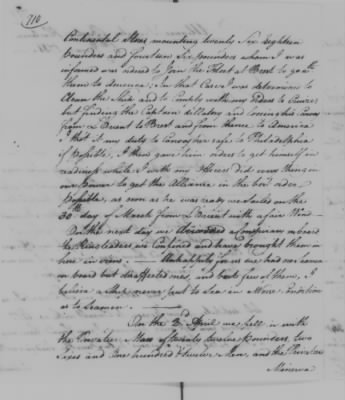 710
Continental Stores mounting twenty Six Eighteen
Pounders and fourteen Six pounders whom I was
informed was ordered to Join the Fleet at Brest to go wth
them to America; In that Case I was determin'd to
Clean the Ship and to Comply with my Orders to Cruize
but finding the Captain dillatory and
from L'Orient to Brest and from thence to America
I that it my duty to Convoy her safe to Philadelphia
if Possible, I then gave him orders to get himself in
readiness while I with my Officers did every thing in
our Power to get the Alliance in the best order
Possible, as soon as he was ready we Sailed on the
30th day of March from L'Orient with a fair Wind
On the next day we discovered a Conspiracy on board
the Ringleaders are Confined and have brought them in
here in irons. — Unhappily for us we had no Seamen
on board but disaffected ones, and but few of them, I
believe a Ship never put to Sea in Worse Condition
as to Seamen.
On the 2nd April we fell in with
the Privateer Mars of twenty twelve Pounders, two
Sixes and One hundred & twelve Men, and the Privateer
Minerva